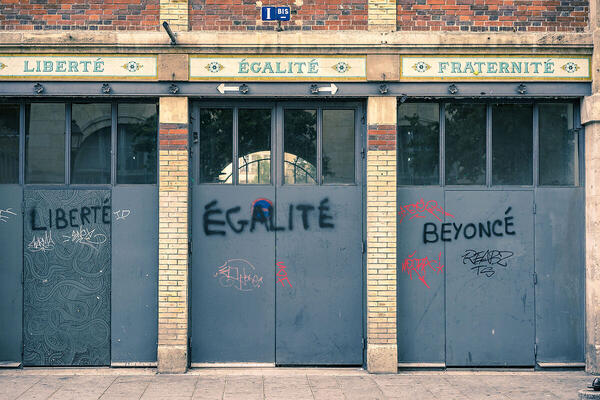 1 BIS
LIBERTÉ
ÉGALITÉ
FRATERNITÉ
LIBERTÉ
ÉGALITÉ
BEYONCÉ